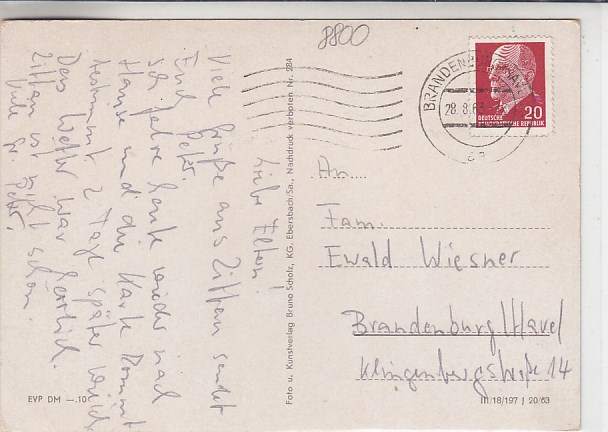 8800
BRANDENBURG (HAVEL)
28. 8. 63
DEUTSCHE
DEMOKRATISCHE REPUBLIK
20
Liebe Eltern!
Viele Grüße aus Zittau sendet
Euch Peter.
Ich fahre heute wieder nach
Hause und die Karte kommt
bestimmt 2 Tage später
Das Wetter war herrlich.
Zittau ist nicht schön.
Peter.
Foto u. Kunstverlag Bruno Scholz, KG. Ebersbach/Sa., Nachdruck verboten Nr. 284
An....
Fam.
Ewald Wiesner
Brandenburg/Havel
Klingenbergstraße 14
EVP DM —.10
III/18/197 J 20/63